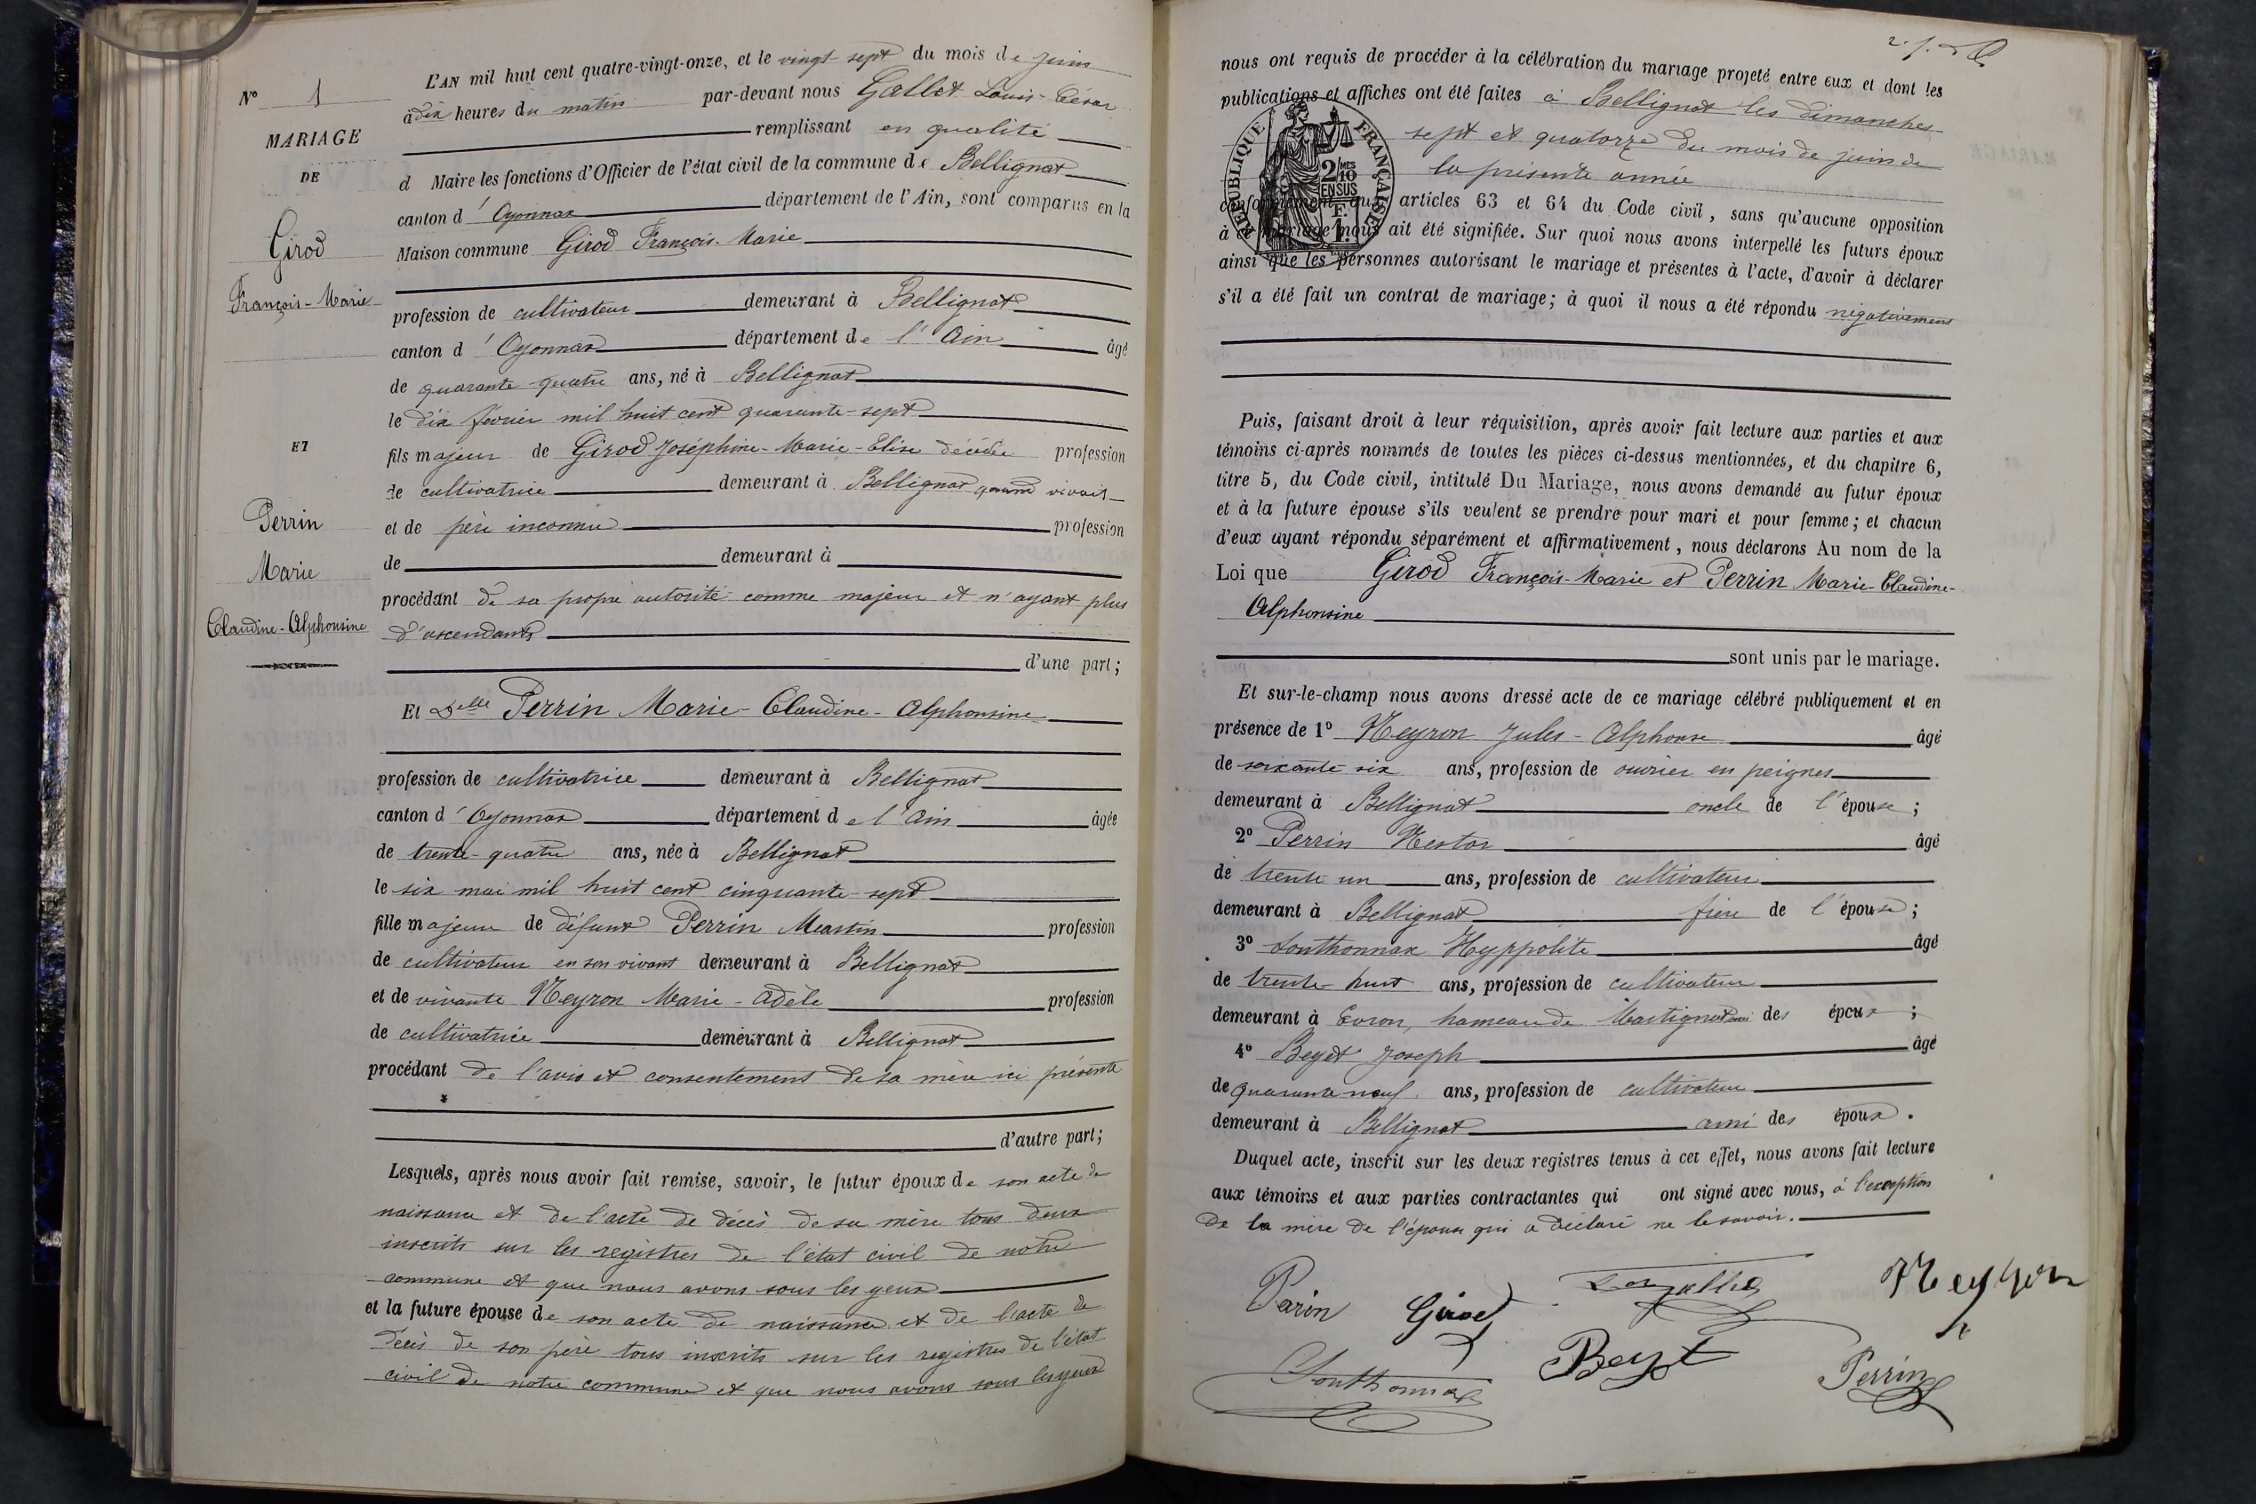 N° 1
MARIAGE
DE
Girod
François-Marie
ET
Perrin
Marie
Claudine-Alphonsine
L'AN mil huit cent quatre-vingt-onze, et le vingt sept du mois de juin
à dix heures du matin par-devant nous Gallet Louis-César
remplissant en qualité
d Maire les fonctions d'Officier de l'état civil de la commune de Bellignat
canton d'Oyonnax département de l'Ain, sont comparus en la
Maison commune Girod François-Marie
profession de cultivateur demeurant à Bellignat
canton d'Oyonnax département de l'Ain âgé
de quarante-quatre ans, né à Bellignat
le dix février mil huit cent quarante-sept
fils majeur de Girod Joséphine-Marie-Elise décédée profession
de cultivatrice demeurant à Bellignat quand vivait
et de père inconnu profession
de demeurant à
procédant de sa propre autorité comme majeur et n'ayant plus
d'ascendants
d'une part;
Et Delle Perrin Marie-Claudine-Alphonsine
profession de cultivatrice demeurant à Bellignat
canton d'Oyonnax département de l'Ain âgée
de trente-quatre ans, née à Bellignat
le six mai mil huit cent cinquante-sept
fille majeure de défunt Perrin Martin profession
de cultivateur en son vivant demeurant à Bellignat
et de vivante Neyron Marie-Adèle profession
de cultivatrice demeurant à Bellignat
procédant de l'avis et consentement de sa mère ici présente
d'autre part;
Lesquels, après nous avoir fait remise, savoir, le futur époux de son acte de
naissance et de l'acte de décès de sa mère tous deux
inscrits sur les registres de l'état civil de notre
commune et que nous avons sous les yeux
et la future épouse de son acte de naissance et de l'acte de
décès de son père tous inscrits sur les registres de l'état
civil de notre commune et que nous avons sous les yeux
nous ont requis de procéder à la célébration du mariage projeté entre eux et dont les
publications et affiches ont été faites à Bellignat les dimanches
sept et quatorze du mois de juin de
la présente année
conformément aux articles 63 et 64 du Code civil, sans qu'aucune opposition
à ce mariage nous ait été signifiée. Sur quoi nous avons interpellé les futurs époux
ainsi que les personnes autorisant le mariage et présentes à l'acte, d'avoir à déclarer
s'il a été fait un contrat de mariage; à quoi il nous a été répondu négativement
RÉPUBLIQUE FRANÇAISE
2/10 MES
EN SUS
1 F.
Puis, faisant droit à leur réquisition, après avoir fait lecture aux parties et aux
témoins ci-après nommés de toutes les pièces ci-dessus mentionnées, et du chapitre 6,
titre 5, du Code civil, intitulé Du Mariage, nous avons demandé au futur époux
et à la future épouse s'ils veulent se prendre pour mari et pour femme; et chacun
d'eux ayant répondu séparément et affirmativement, nous déclarons Au nom de la
Loi que Girod François-Marie et Perrin Marie-Claudine-
Alphonsine
sont unis par le mariage.
Et sur-le-champ nous avons dressé acte de ce mariage célébré publiquement et en
présence de 1° Neyron Jules-Alphonse âgé
de soixante-six ans, profession de ouvrier en peignes
demeurant à Bellignat oncle de l'épouse;
2° Perrin Nestor âgé
de trente un ans, profession de cultivateur
demeurant à Bellignat frère de l'épouse;
3° Louthonnax Hyppolite âgé
de trente-huit ans, profession de cultivateur
demeurant à Evron, hameau de Martignat ami des époux;
4° Beyet Joseph âgé
de quarante neuf ans, profession de cultivateur
demeurant à Bellignat ami des époux.
Duquel acte, inscrit sur les deux registres tenus à cet effet, nous avons fait lecture
aux témoins et aux parties contractantes qui ont signé avec nous, à l'exception
de la mère de l'épouse qui a déclaré ne le savoir.
Perin Girod Neyron
Louthonnax Beyet Perrin